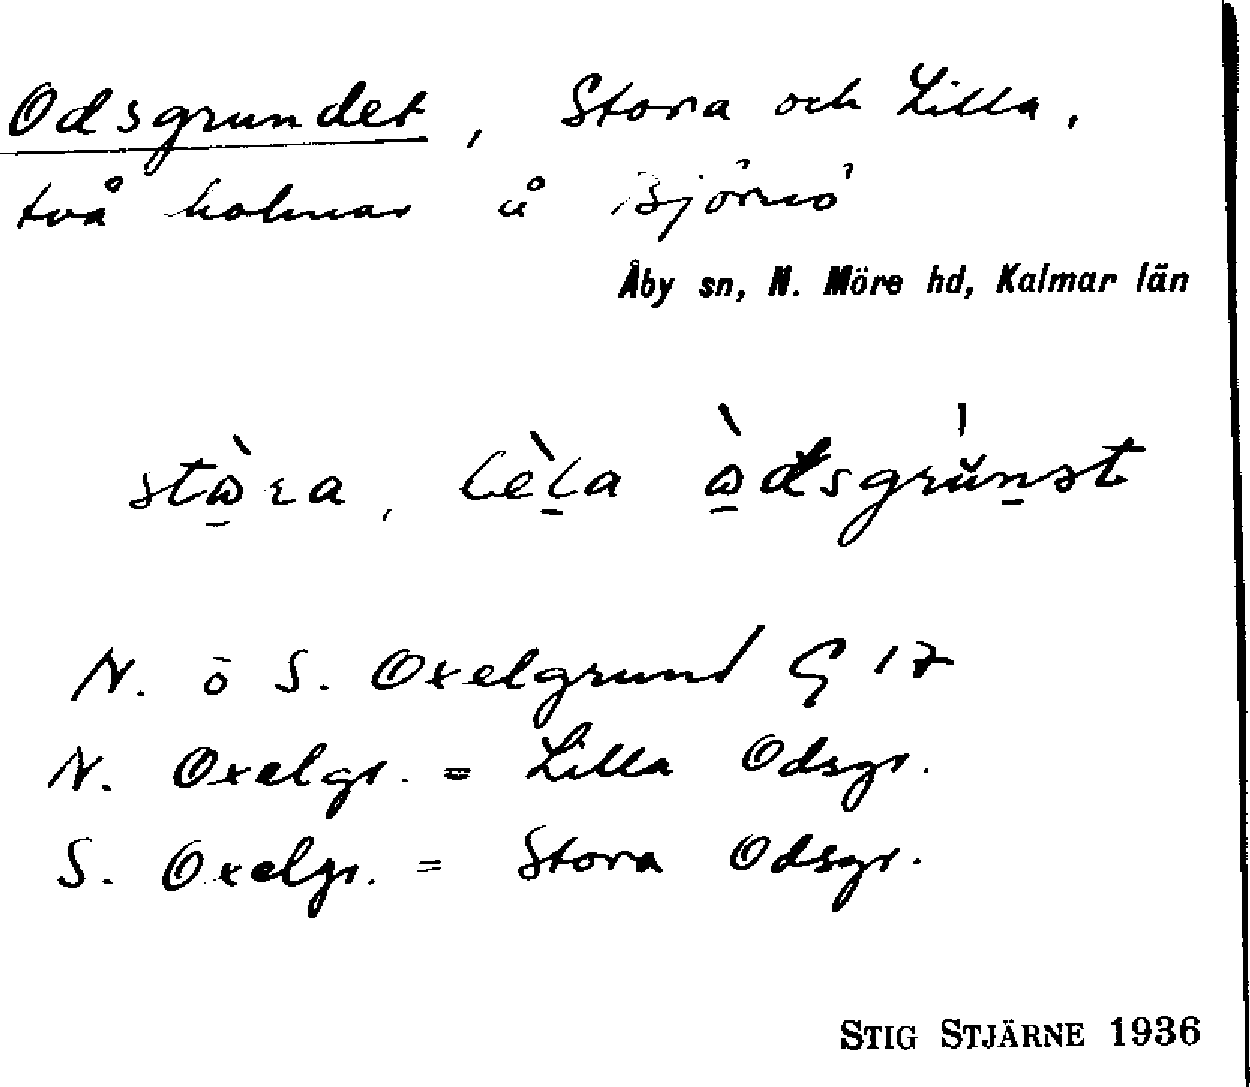 Odsgrundet, Stora och Lilla,
två holmar å Björnö
Åby sn, N. Möre hd, Kalmar län
stɷ̀ra, lèla ɷ̀dsgrùnət
N. o S. Oxelgrund G 17
N. Oxelgr. = Lilla Odsgr.
S. Oxelgr. = Stora Odsgr.
STIG STJÄRNE 1936